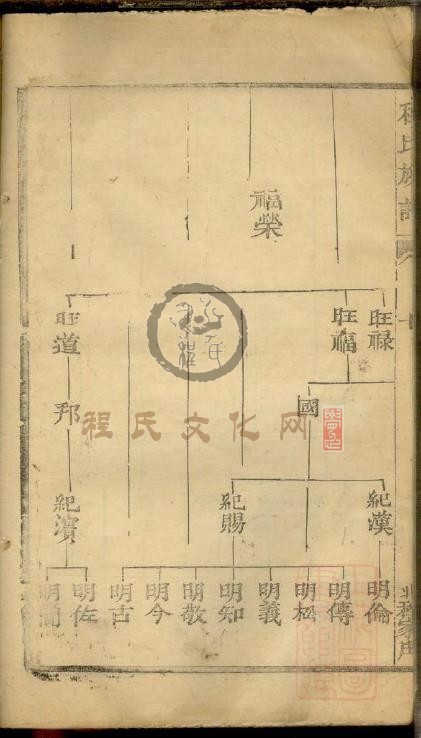 程氏族譜
福榮
旺祿
旺福
旺道
國
邦
紀漢
紀賜
紀濱
明倫
明傳
明松
明義
明知
明敬
明今
明古
明佐
明蘭
程氏文化网